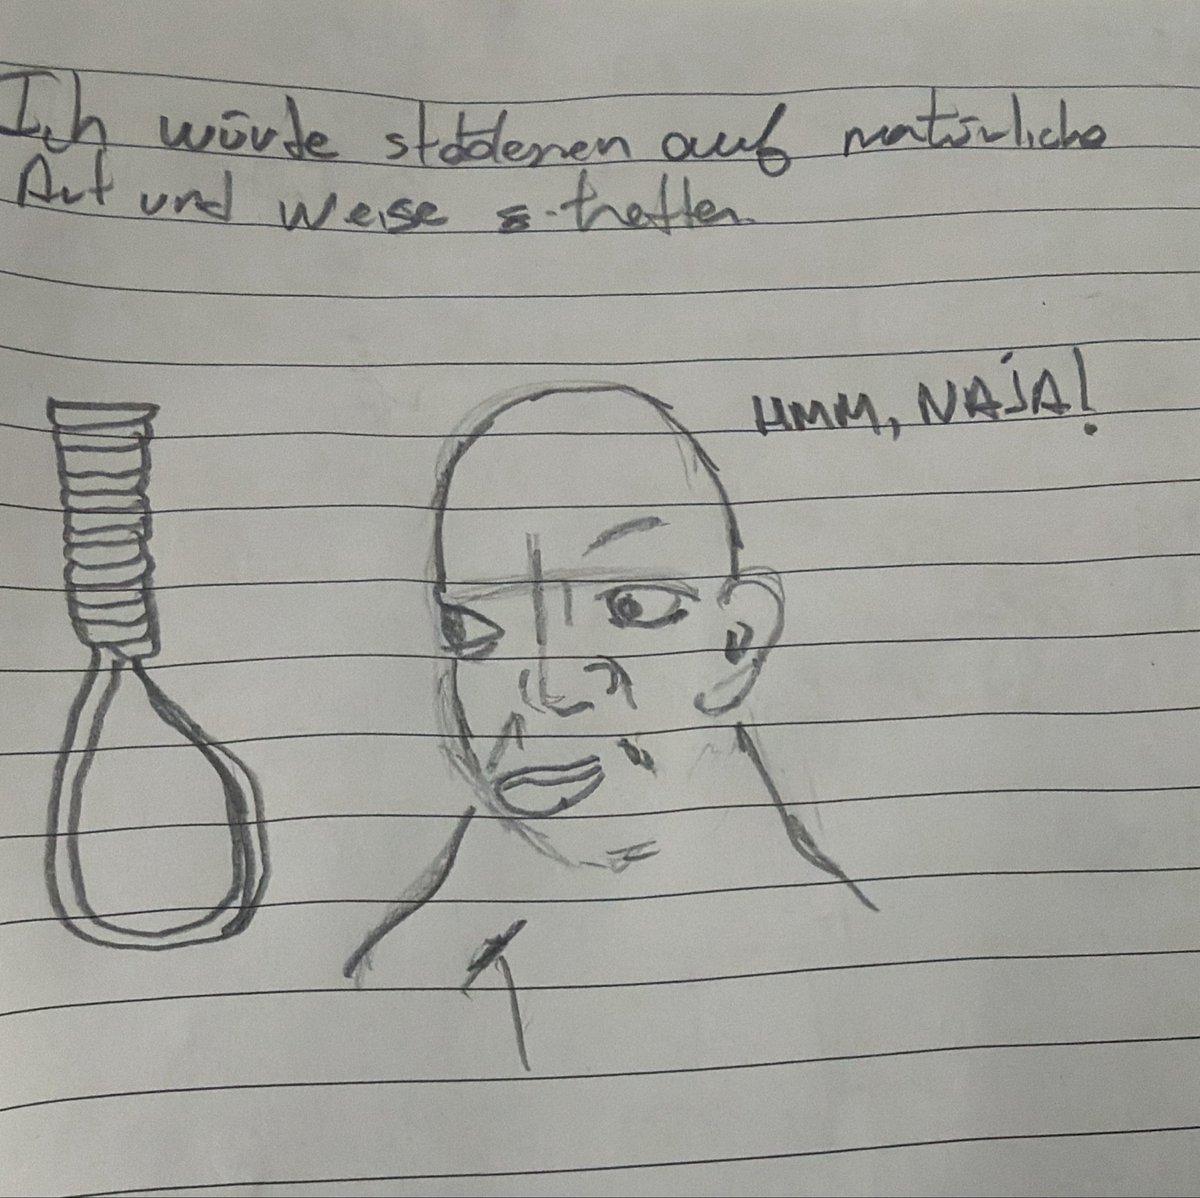 Ich würde auf natürliche
Art und Weise
HMM, NAJA!